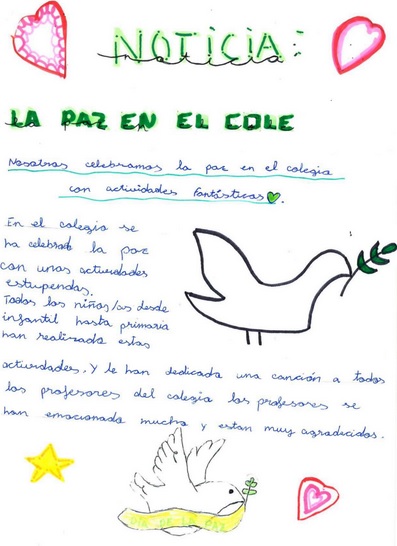 NOTICIA:
noticia
LA PAZ EN EL COLE
Nosotros celebramos la paz en el colegio
con actividades fantásticas.
En el colegio se
ha celebrado la paz
con unas actividades
estupendas.
Todos los niños/as desde
infantil hasta primaria
han realizado estas
actividades. Y le han dedicado una canción a todos
los profesores del colegio los profesores se
han emocionado mucho y estan muy agradecidos.
DIA DE LA PAZ